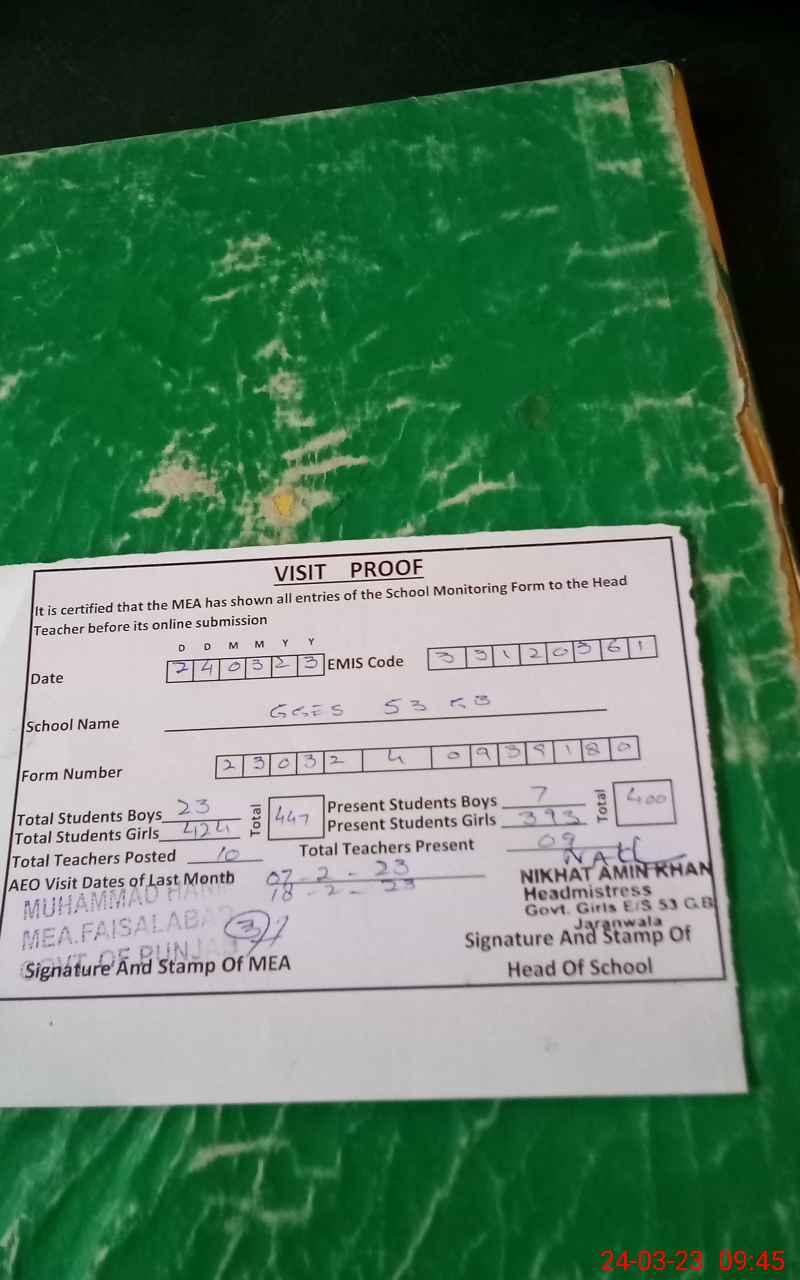 VISIT PROOF
It is certified that the MEA has shown all entries of the School Monitoring Form to the Head
Teacher before its online submission
D D M M Y Y
Date 240323 EMIS Code 33120361
School Name GGES 53 GB
Form Number 23032 4 0938180
Total Students Boys 23 Total 447 Present Students Boys 7 Total 400
Total Students Girls 424 Present Students Girls 393
Total Teachers Posted 10 Total Teachers Present 09
AEO Visit Dates of Last Month 07-2-23
18-2-23
MUHAMMAD
MEA.FAISALABAD
GOVT. OF PUNJAB
Signature And Stamp Of MEA
NIKHAT AMIN KHAN
Headmistress
Govt. Girls E/S 53 G.B
Jaranwala
Signature And Stamp Of
Head Of School
24-03-23 09:45